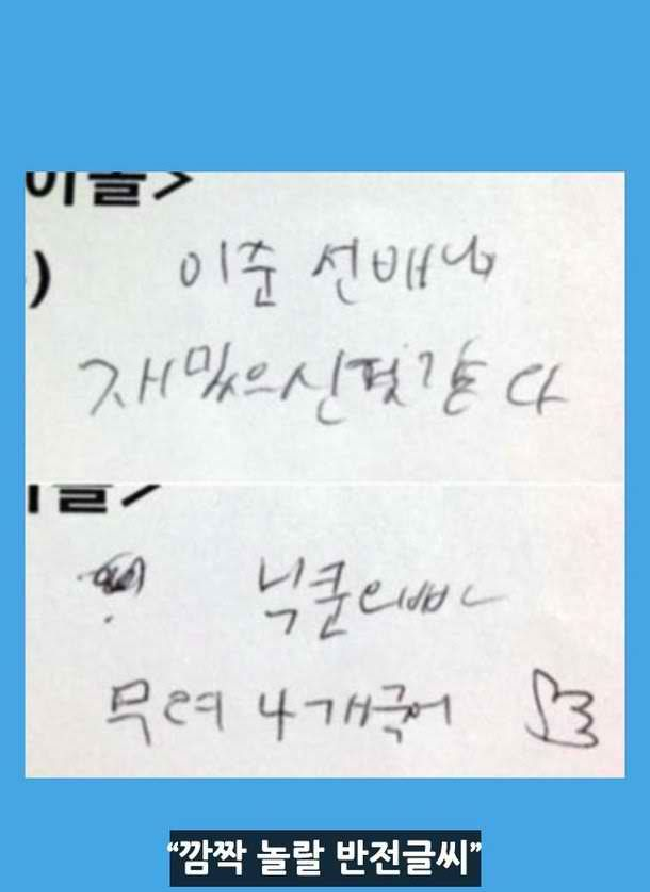 이준 선배님
재밌으신 것 같다
닉쿤 오빠
무려 4개국어
“깜짝 놀랄 반전글씨”